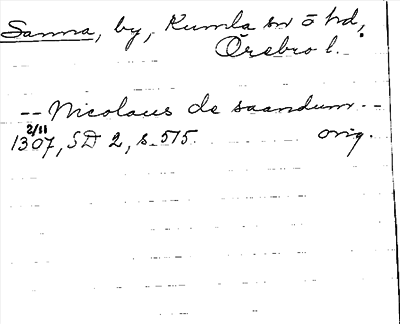 Sanna, by, Kumla sn o hd,
Örebro l.
-- Nicolaus de saandum --
2/11
1307, SD 2, s. 575. orig.